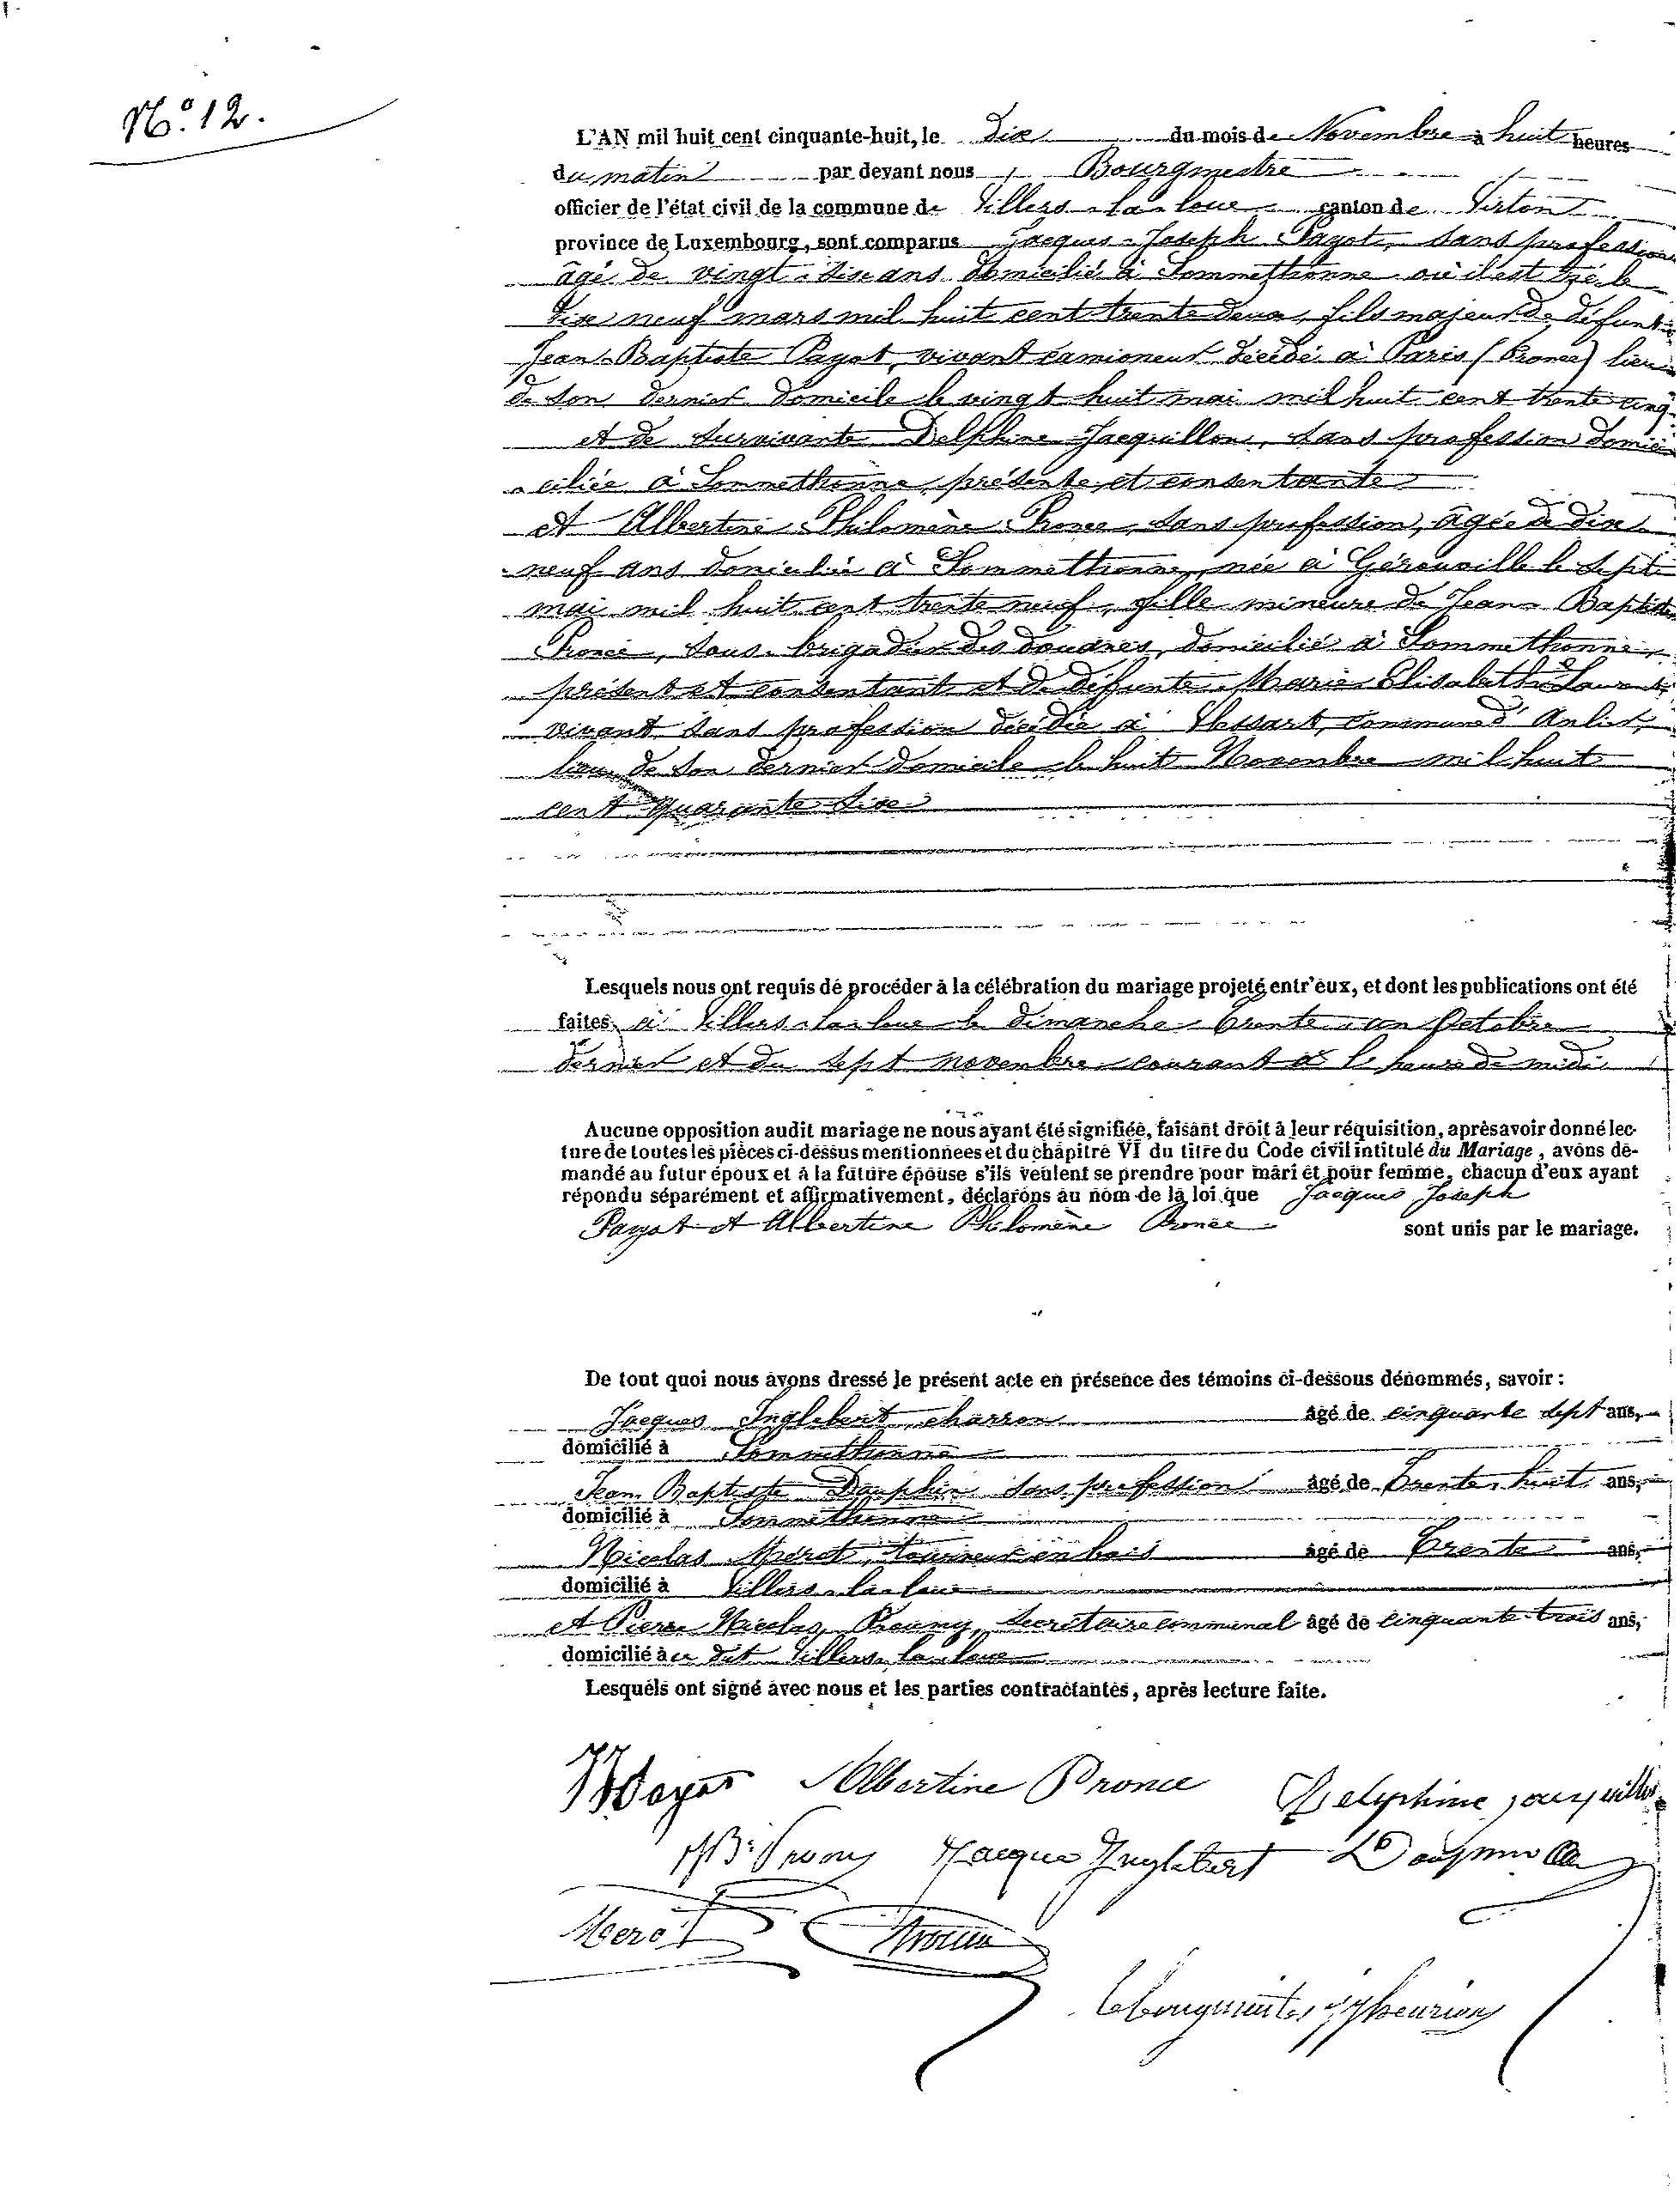 N.º 12.
L'AN mil huit cent cinquante-huit, le dix du mois de Novembre à huit heures
du matin par devant nous, Bourgmestre
officier de l'état civil de la commune de Villers-la-loue canton de Virton
province de Luxembourg, sont comparus Jacques-Joseph Payot, sans profession
âgé de vingt-six ans domicilié à Sommethonne où il est né le
dix neuf mars mil huit cent trente deux, fils majeur de défunt
Jean-Baptiste Payot, vivant camioneur décédé à Paris (France) lieu
de son dernier domicile le vingt huit mai mil huit cent trente cinq
et de survivante Delphine Jacquillon, sans profession domi
ciliée à Sommethonne, présente et consentante
et Albertine Philomène Pronce, sans profession, âgée de dix
neuf ans domiciliée à Sommethonne, née à Gérouville le sept
mai mil huit cent trente neuf, fille mineure de Jean-Baptiste
Pronce, sous-brigadier des douanes, domicilié à Sommethonne,
présent et consentant et de défunte Marie Elisabeth
vivant sans profession décédée à commune d'
lieu de son dernier domicile le huit Novembre mil huit
cent quarante six
Lesquels nous ont requis de procéder à la célébration du mariage projeté entr'eux, et dont les publications ont été
faites à Villers-la-loue le dimanche trente-un Octobre
dernier et du sept novembre courant à l'heure de midi
Aucune opposition audit mariage ne nous ayant été signifiée, faisant droit à leur réquisition, après avoir donné lec-
ture de toutes les pièces ci-dessus mentionnées et du chapitre VI du titre du Code civil intitulé du Mariage, avons de-
mandé au futur époux et à la future épouse s'ils veulent se prendre pour mari et pour femme, chacun d'eux ayant
répondu séparément et affirmativement, déclarons au nom de la loi que Jacques Joseph
Payot et Albertine Philomène Pronce sont unis par le mariage.
De tout quoi nous avons dressé le présent acte en présence des témoins ci-dessous dénommés, savoir :
Jacques Inglebert, charron âgé de cinquante sept ans,
domicilié à Sommethonne
Jean Baptiste Dauphin sans profession âgé de Trente huit ans,
domicilié à Sommethonne
Nicolas Meret, tourneur en bois âgé de Trente ans,
domicilié à Villers-la-loue
et Pierre Nicolas secrétaire communal âgé de cinquante-trois ans,
domicilié à ce dit Villers-la-loue
Lesquels ont signé avec nous et les parties contractantes, après lecture faite.
Payot Albertine Pronce Delphine
Jacque Inglebert